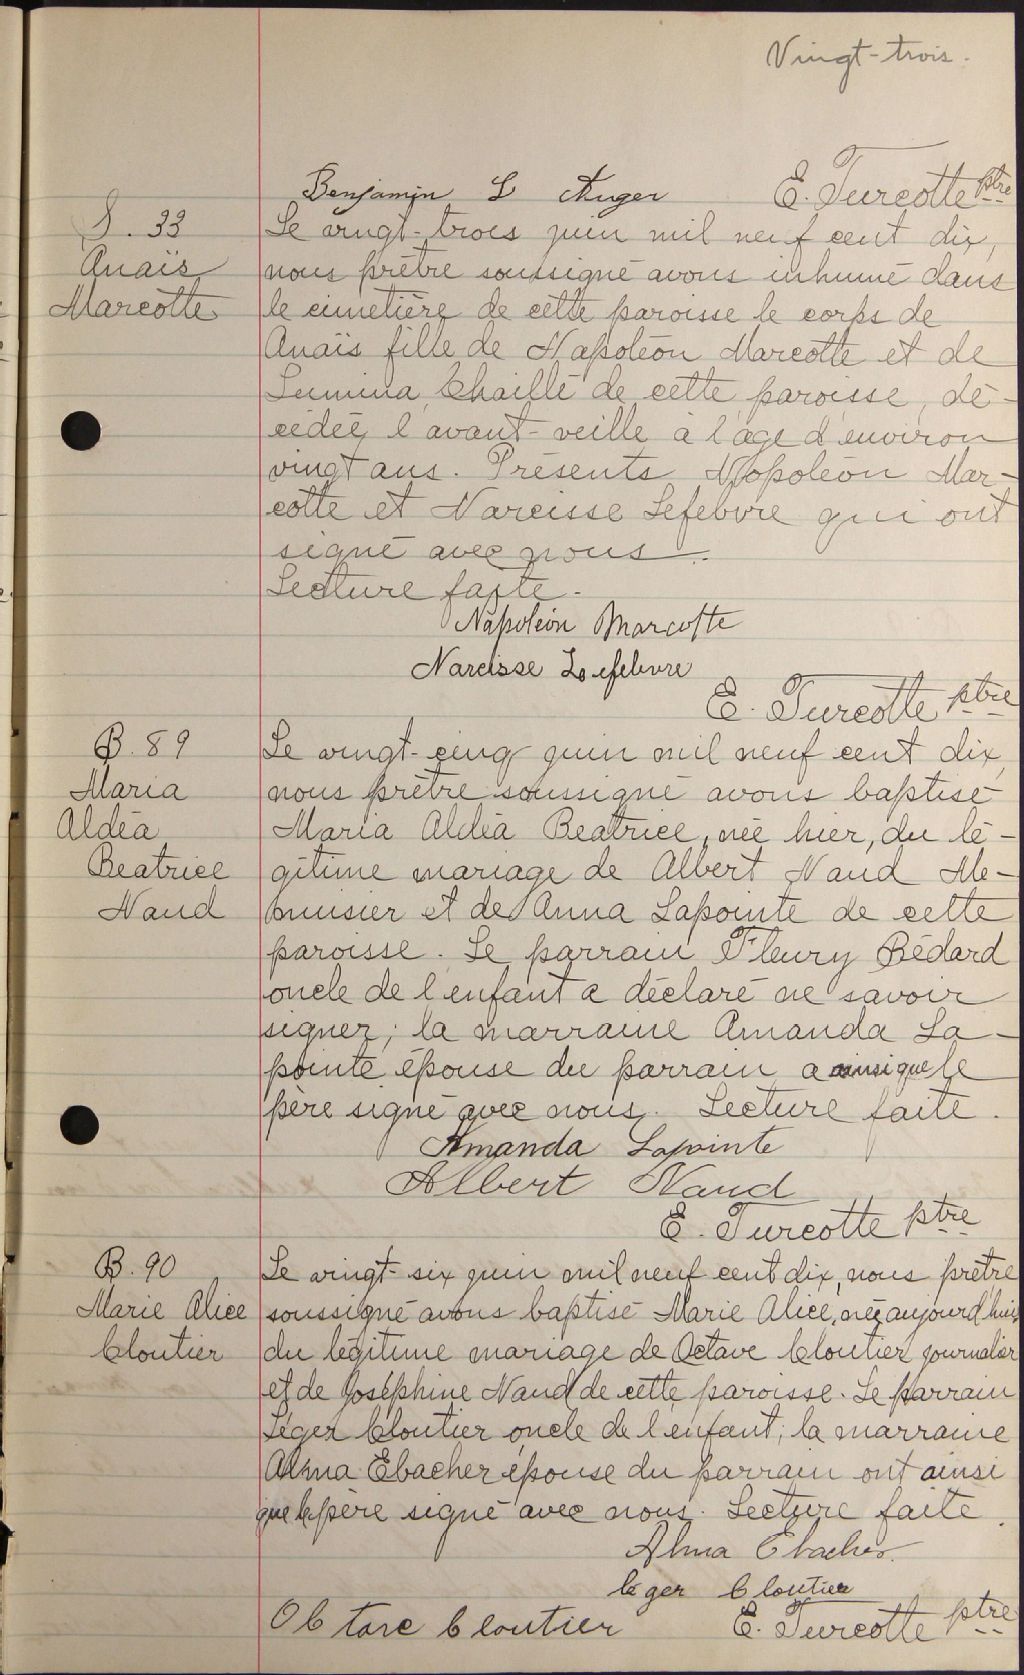 Vingt-trois.
Benjamin L Auger E. Turcotte ptre
S. 33
Anaïs
Marcotte
Le vingt-trois juin mil neuf cent dix,
nous prêtre soussigné avons inhumé dans
le cimetière de cette paroisse le corps de
Anaïs fille de Napoléon Marcotte et de
Lumina Chaillé de cette paroisse, dé-
cédée l'avant-veille à l'âge d'environ
vingt ans. Présents Napoléon Mar-
cotte et Narcisse Lefebvre qui ont
signé avec nous.
Lecture faite.
Napoléon Marcotte
Narcisse Lefebvre
E. Turcotte ptre
B. 89
Maria
Aldéa
Beatrice
Naud
Le vingt-cinq juin mil neuf cent dix,
nous prêtre soussigné avons baptisé
Maria Aldéa Beatrice, née hier, du lé-
gitime mariage de Albert Naud Me-
nuisier et de Anna Lapointe de cette
paroisse. Le parrain Fleury Bédard
oncle de l'enfant a déclaré ne savoir
signer; la marraine Amanda La-
pointe épouse du parrain a ainsi que le
père signé avec nous. Lecture faite.
Amanda Lapointe
Albert Naud
E. Turcotte ptre
B. 90
Marie Alice
Cloutier
Le vingt-six juin mil neuf cent dix, nous prêtre
soussigné avons baptisé Marie Alice, née aujourd'hui,
du légitime mariage de Octave Cloutier journalier
et de Joséphine Naud de cette paroisse. Le parrain
Léger Cloutier oncle de l'enfant; la marraine
Alma Ebacher épouse du parrain ont ainsi
que le père signé avec nous. Lecture faite.
Alma Ebacher
léger Cloutier
Obtave Cloutier E. Turcotte ptre